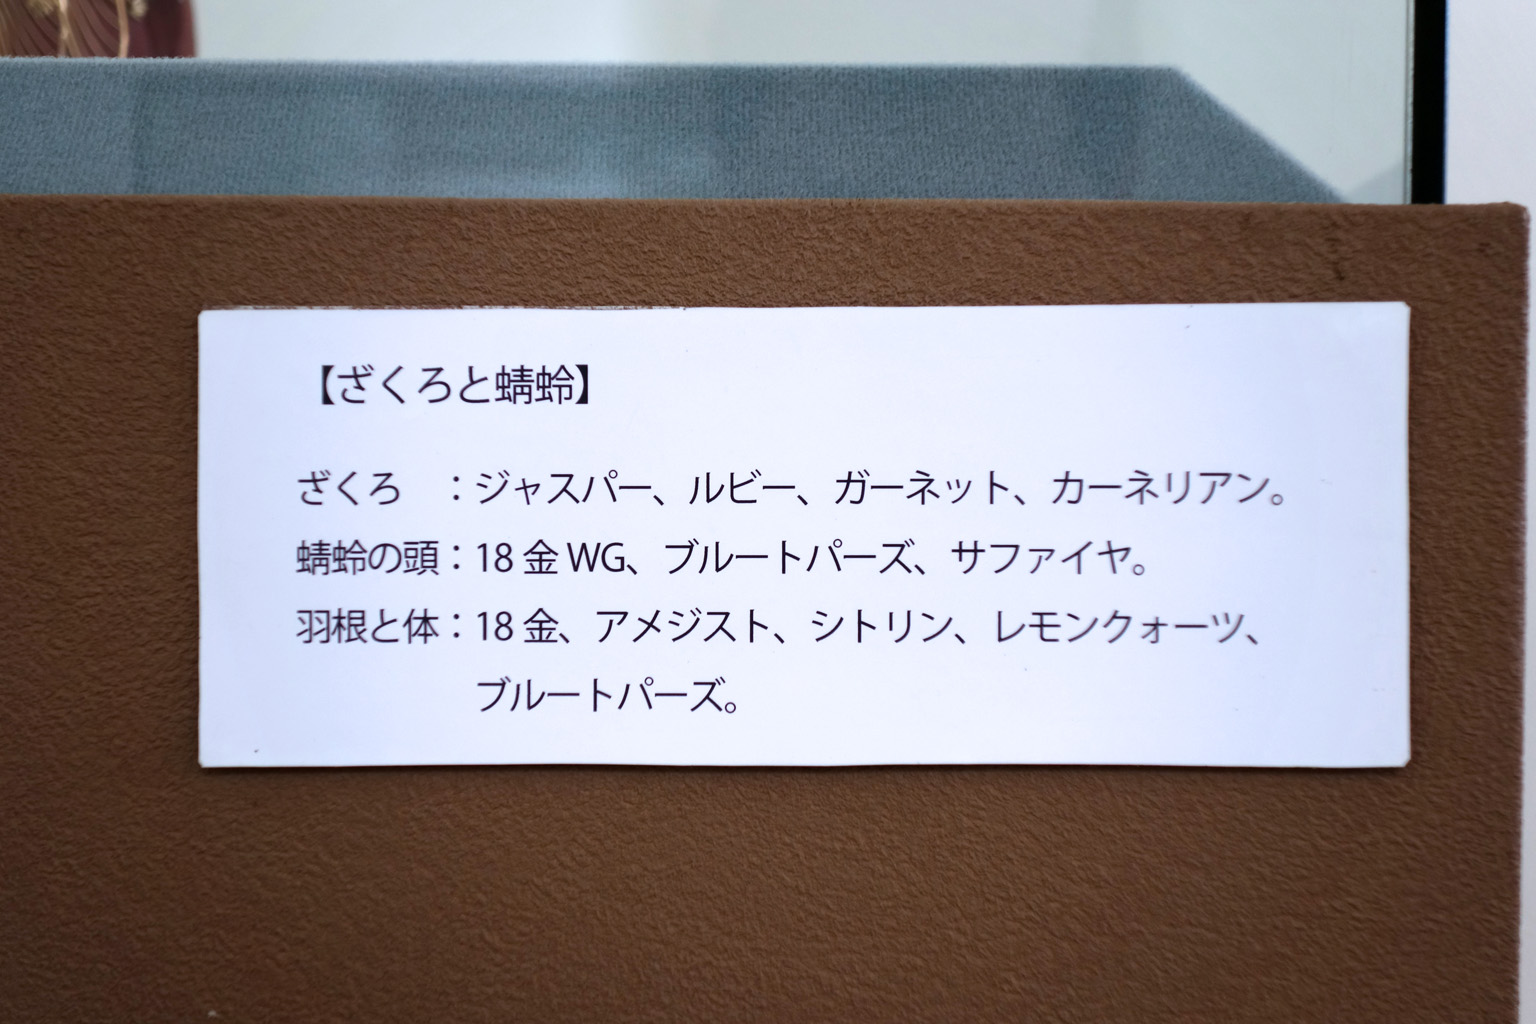 【ざくろと蜻蛉】
ざくろ　：ジャスパー、ルビー、ガーネット、カーネリアン。
蜻蛉の頭：18 金 WG、ブルートパーズ、サファイヤ。
羽根と体：18 金、アメジスト、シトリン、レモンクォーツ、
ブルートパーズ。